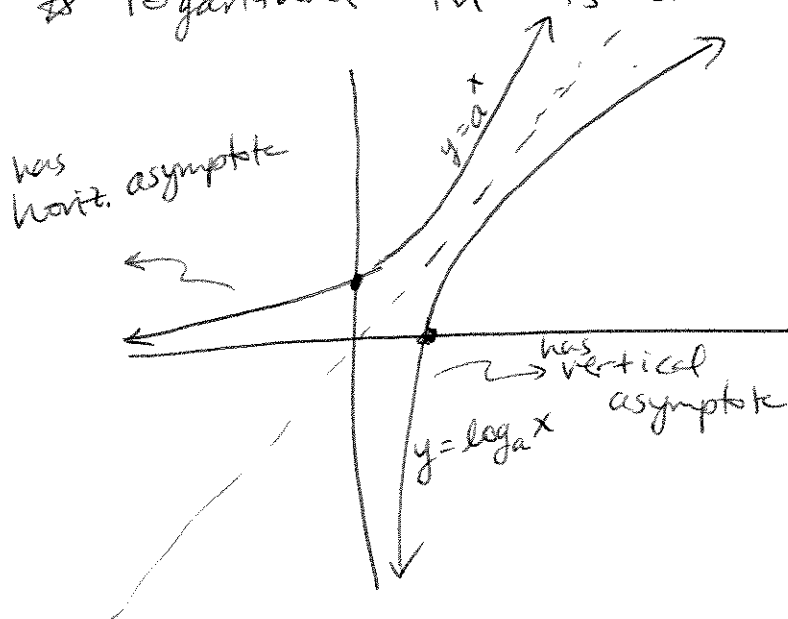 y=a^x
has
horiz. asymptote
has
vertical
asymptote
y=log_a x